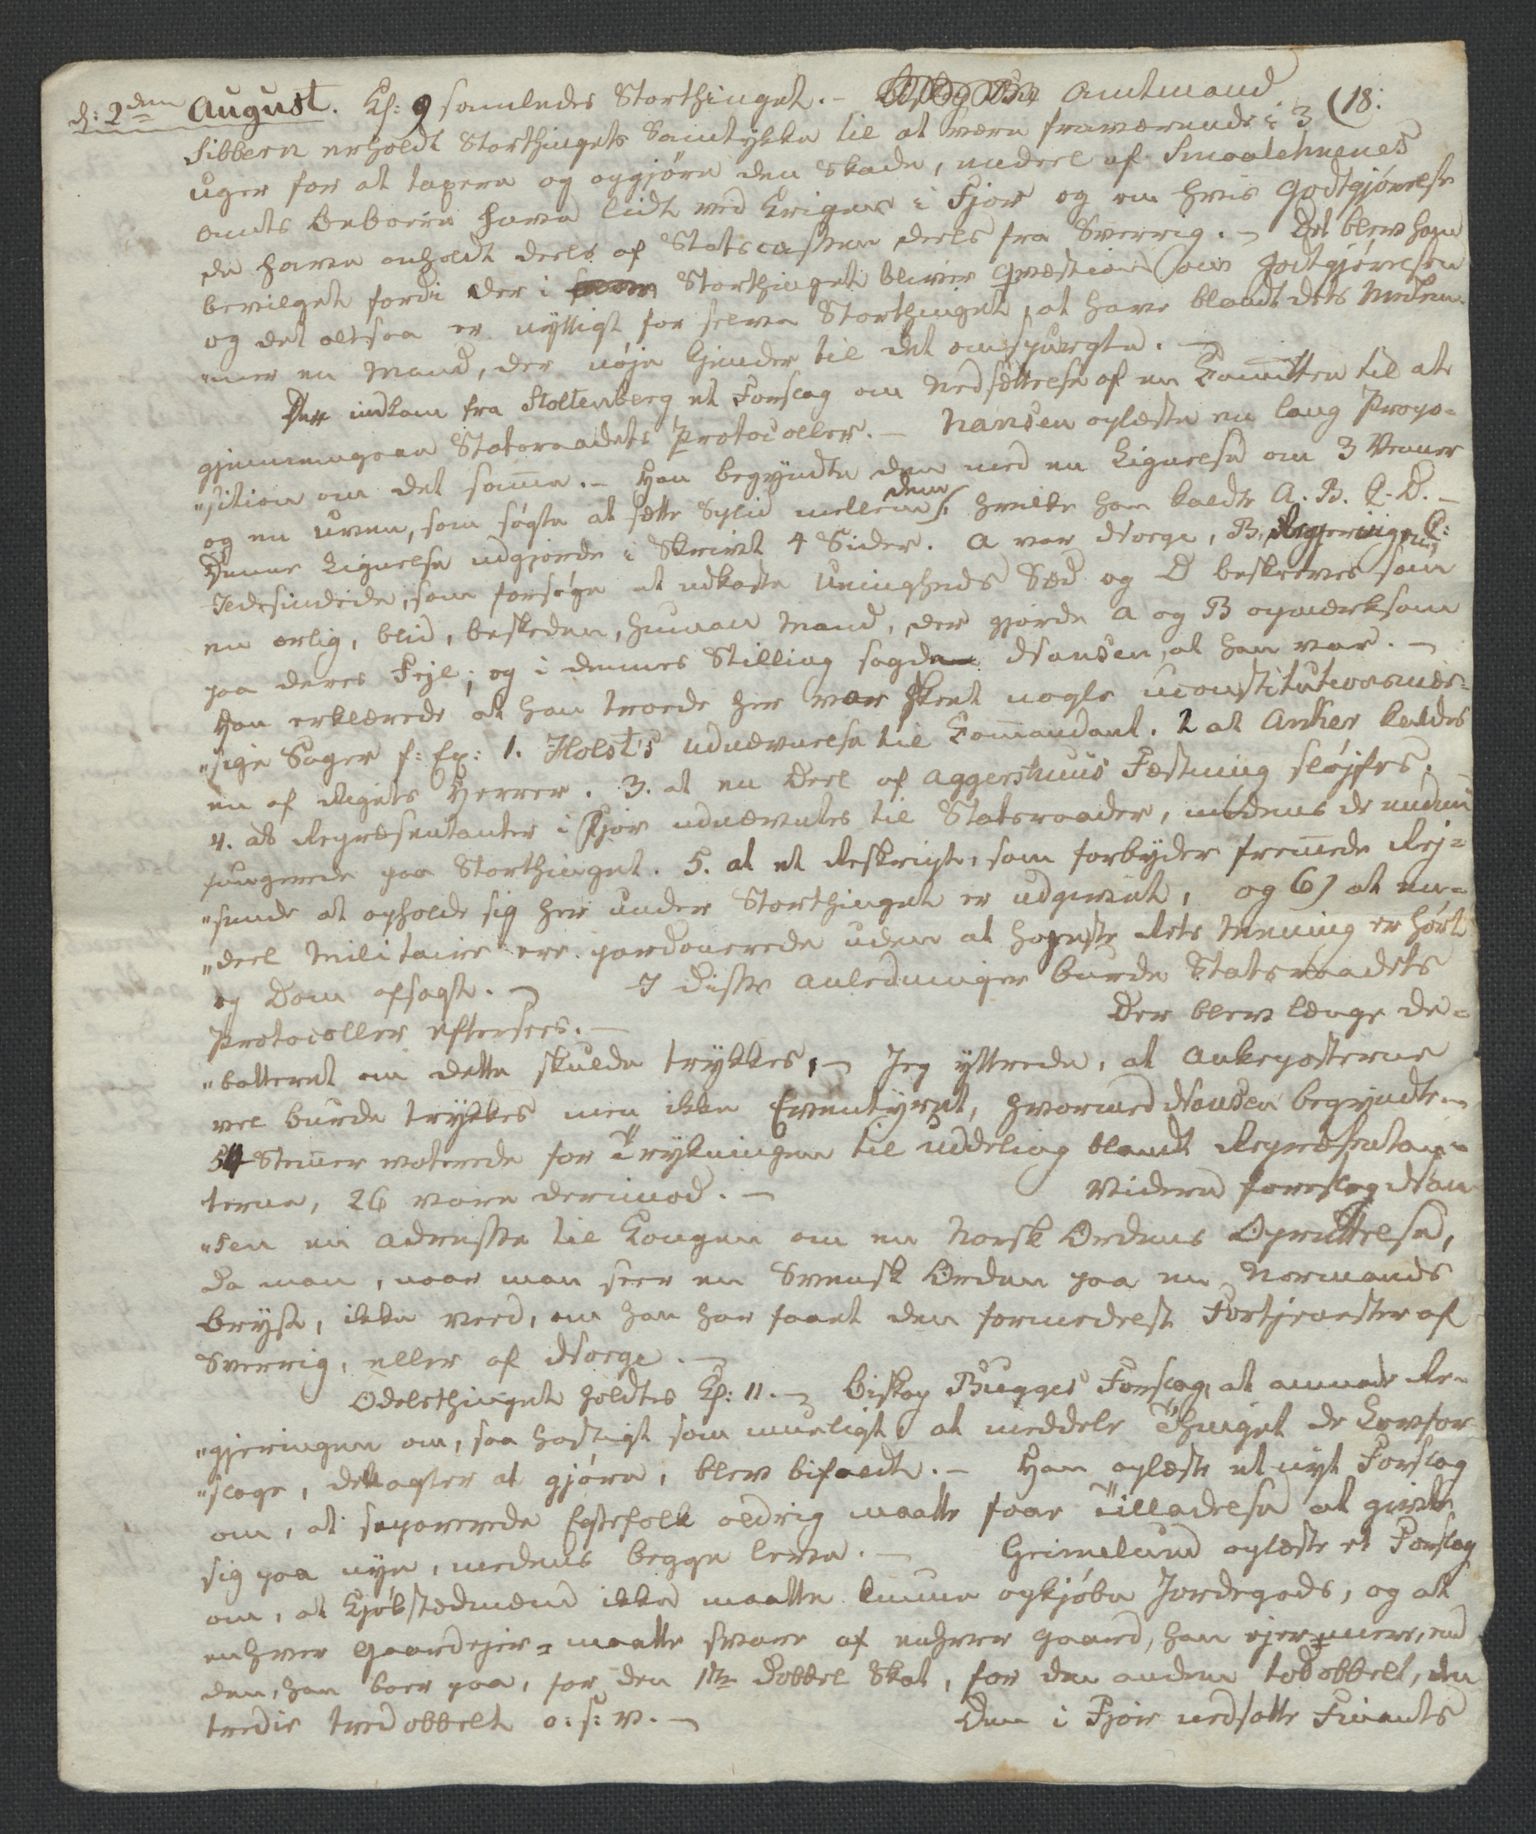 d: 2den August. Kl: 9 samledes Storthinget. – Amtmand
(18:
Sibbern erholdt Storthingets Samtykke til at være fraværende i 3
uger for at taxera og opgjøre den Skade, endeel af Smaalehnenes
Amts Beboere have lidt ved Krigen i Fjor og om hvis Godtgjørelse
de have anholdt deels af Statscassen deels fra Sverrig. – Det blev ham
bevilget fordi der i Storthinget bliver Qvæstion om Godtgjørelsen
og det altsaa er nyttigt for selve Storthinget, at have blandt dets Medlem-
"mer en Mand, der nøje kjender til det omspurgte. –
Der indkom fra Stoltenberg et Forslag om Nedsættelse af en Committee til at
gjennemgaae Statsraadets Protocoller. – Hansen oplæste en lang Propo-
"sition om det samme. – Han begyndte den med en Lignelse om 3 Venner
og en Uven, som søgte at sætte Splid mellem dem, hvilke han kaldte A. B. C. D. –
Denne Lignelse udgjorde i Skrivt 4 Sider. A var Norge, B. Regjeringen, C:
Ildesindede, som forsøge at udkaste Uenigheds Sæd og D beskreves som
en ærlig, blid, beskeden, human Mand, der gjorde A og B opmærksom
paa deres Fejl; og i dennes Stilling sagde Hansen, at han var. –
Han erklærede at han troede her var skeet nogle uconstitutionsmæs-
"sige Sager f: Ex: 1. Holst's Udnævnelse til Commandant. 2 at Anker kaldes
en af Rigets Herrer. 3. at en Deel af Aggershuus Fæstning sløjfes.
4. at Repræsentanter i Fjor udnævntes til Statsraader, medens de endnu
fungerede paa Storthinget. 5. at et Reskript, som forbyder fremmede Rej-
"sende at opholde sig her under Storthinget er udgivet, og 6) at en-
"deel Militaire ere pardonerede uden at Højeste Rets Mening er hørt
og Dom afsagt. – I disse Anledninger burde Statsraadets
Protocoller eftersees. – Der blev længe de-
"batteret om dette skulde trykkes, – Jeg yttrede, at Ankeposterne
vel burde trykkes men ikke Eventyret, hvormed Hansen begyndte. –
54 Stemmer voterede for Trykningen til Uddeling blandt Repræsentan-
terne, 26 vare derimod. – Videre foreslog Han-
"sen en Adresse til Kongen om en Norsk Ordens Oprettelse,
da man, naar man seer en Svensk Orden paa en Normands
Bryst, ikke veed, om han har faaet den formedelst Fortjenester af
Sverrig, eller af Norge. –
Odelsthinget holdtes Kl: 11. – Biskop Bugges Forslag, at anmode Re-
"gjeringen om, saa hastigt som mueligt at meddele Thinget de Lovfor-
"slage, den agter at gjøre, blev bifaldt. – Han oplæste et nyt Forslag
om, at separerede Egtefolk aldrig maatte faae Tilladelse at givte
sig paa nye, medens begge leve. – Grimelund oplæste et Forslag
om, at Kjøbstedmænd ikke maatte kunne opkjøbe Jordegods, og at
enhver Gaardejer maatte svare af enhver Gaard, han ejer mere, end
den, han boer paa, for den 1ste Dobbel Skat, for den anden todobbelt, den
tredie tredobbelt o: s: v. – Den i Fjor nedsatte Finants